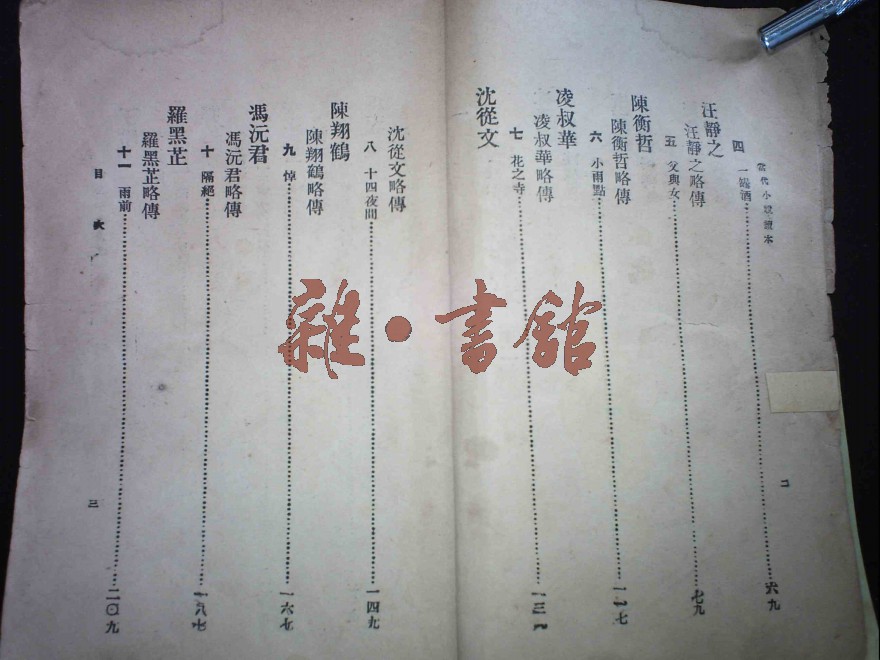 當代小說讀本
四 一罎酒 六九
汪靜之
汪靜之略傳
五 父與女 七九
陳衡哲
陳衡哲略傳
六 小雨點
凌叔華
凌叔華略傳
七 花之寺
沈從文
二
沈從文略傳
八 十四夜間 一四九
陳翔鶴
陳翔鶴略傳
九 悼 一六七
馮沅君
馮沅君略傳
十 隔絕 一八七
羅黑芷
羅黑芷略傳
十一 雨前 二〇九
目次
三
雜·書館